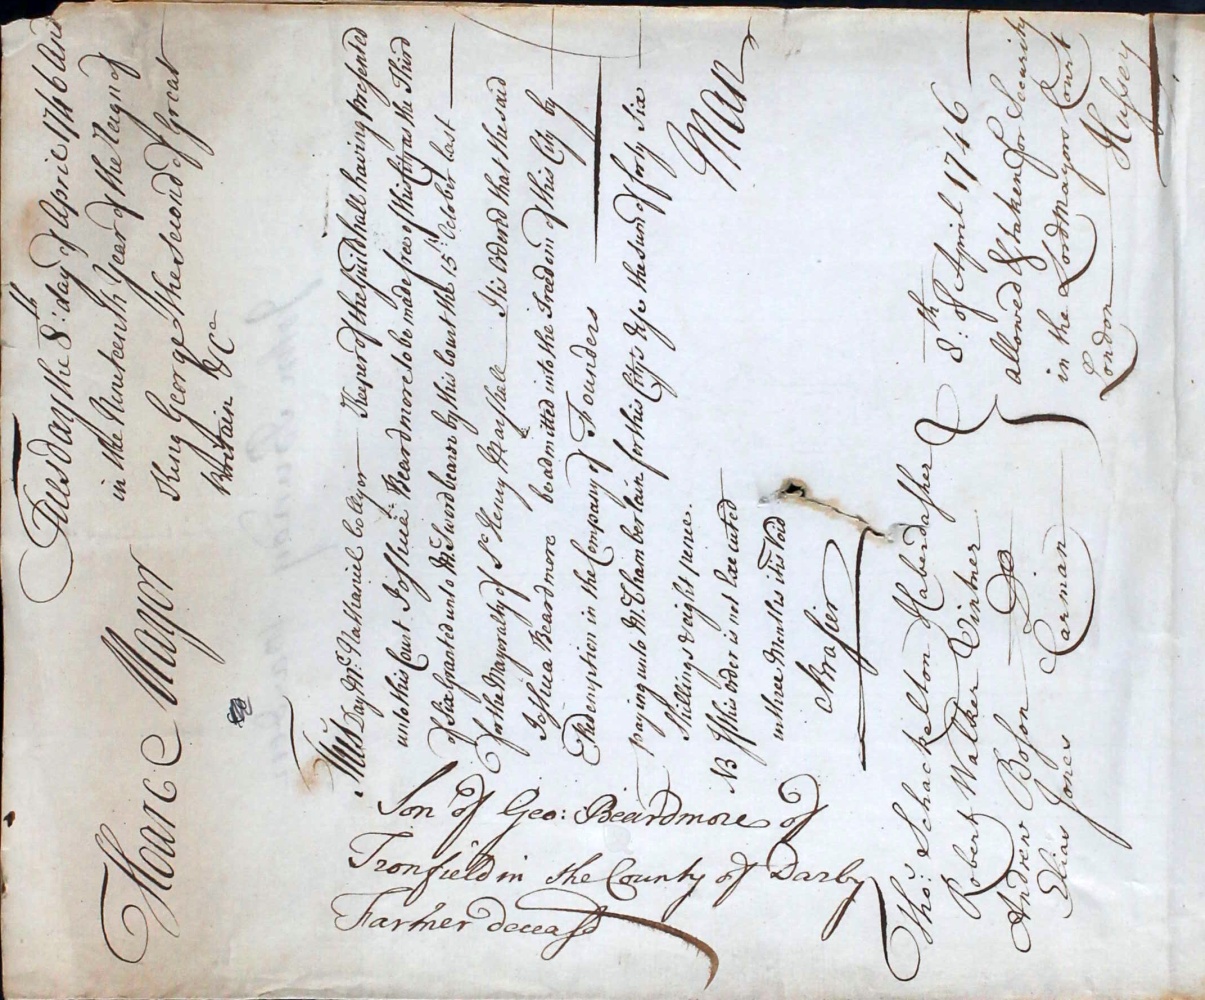 Hoare Mayor
Tuesday the 8th: day of Aprill 1746 And
in the Nineteenth Year of the Reign of
King George the Second of Great
Britain &Ca
This Day Mr. Nathaniel Collyer Keeper of the Guildhall having presented
unto this Court Joshua Beardmore to be made free of this City as the Third
of Six granted unto Mr. Swordbearer by this Court the 15th. October last
for the Mayoralty of Sr. Henry Marshall It is Ordered that the said
Joshua Beardmore be admitted into the Freedom of this City by
Redemption in the Company of Founders
paying unto Mr. Chamberlain for this Citys Use the sum of forty Six
Shillings & eight pence.
Man
NB If this order is not Executed
in three Months it is Void
Son of Geo: Beardmore of
Ironfield in the County of Darby
Farmer deceasd
Tho: Schackelton Haberdasher
Robert Walker Vintner
Andrew Boson Do
Elias Jones Carman
8th: of April 1746
allowed & taken for Security
in the Lord Mayors Court
London
Hussey